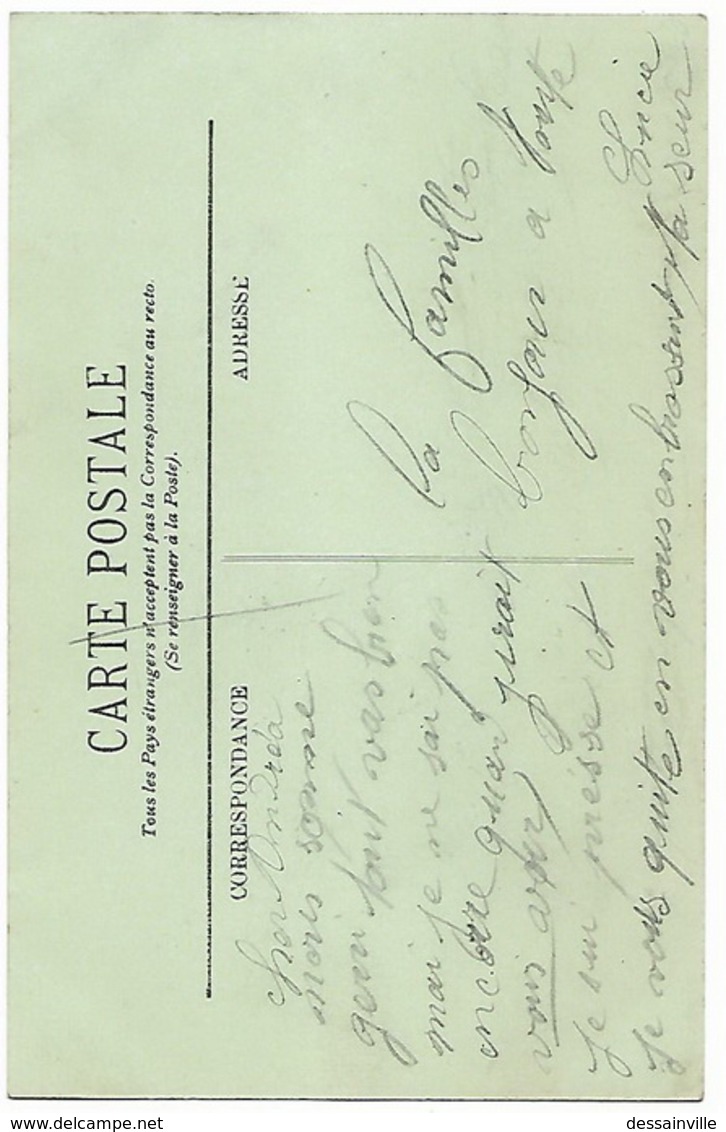 CARTE POSTALE
Tous les Pays étrangers n'acceptent pas la Correspondance au recto.
(Se renseigner à la Poste).
CORRESPONDANCE
ADRESSE
Cher Andréa
nous somme
geri tout vas bien
mai je ne sai pas
encore quan jirait
vous avoir
je sui présse et
je vous quite en vous enbrassant Lucie
ta seur
bonjour a toute
la familles
dessainville